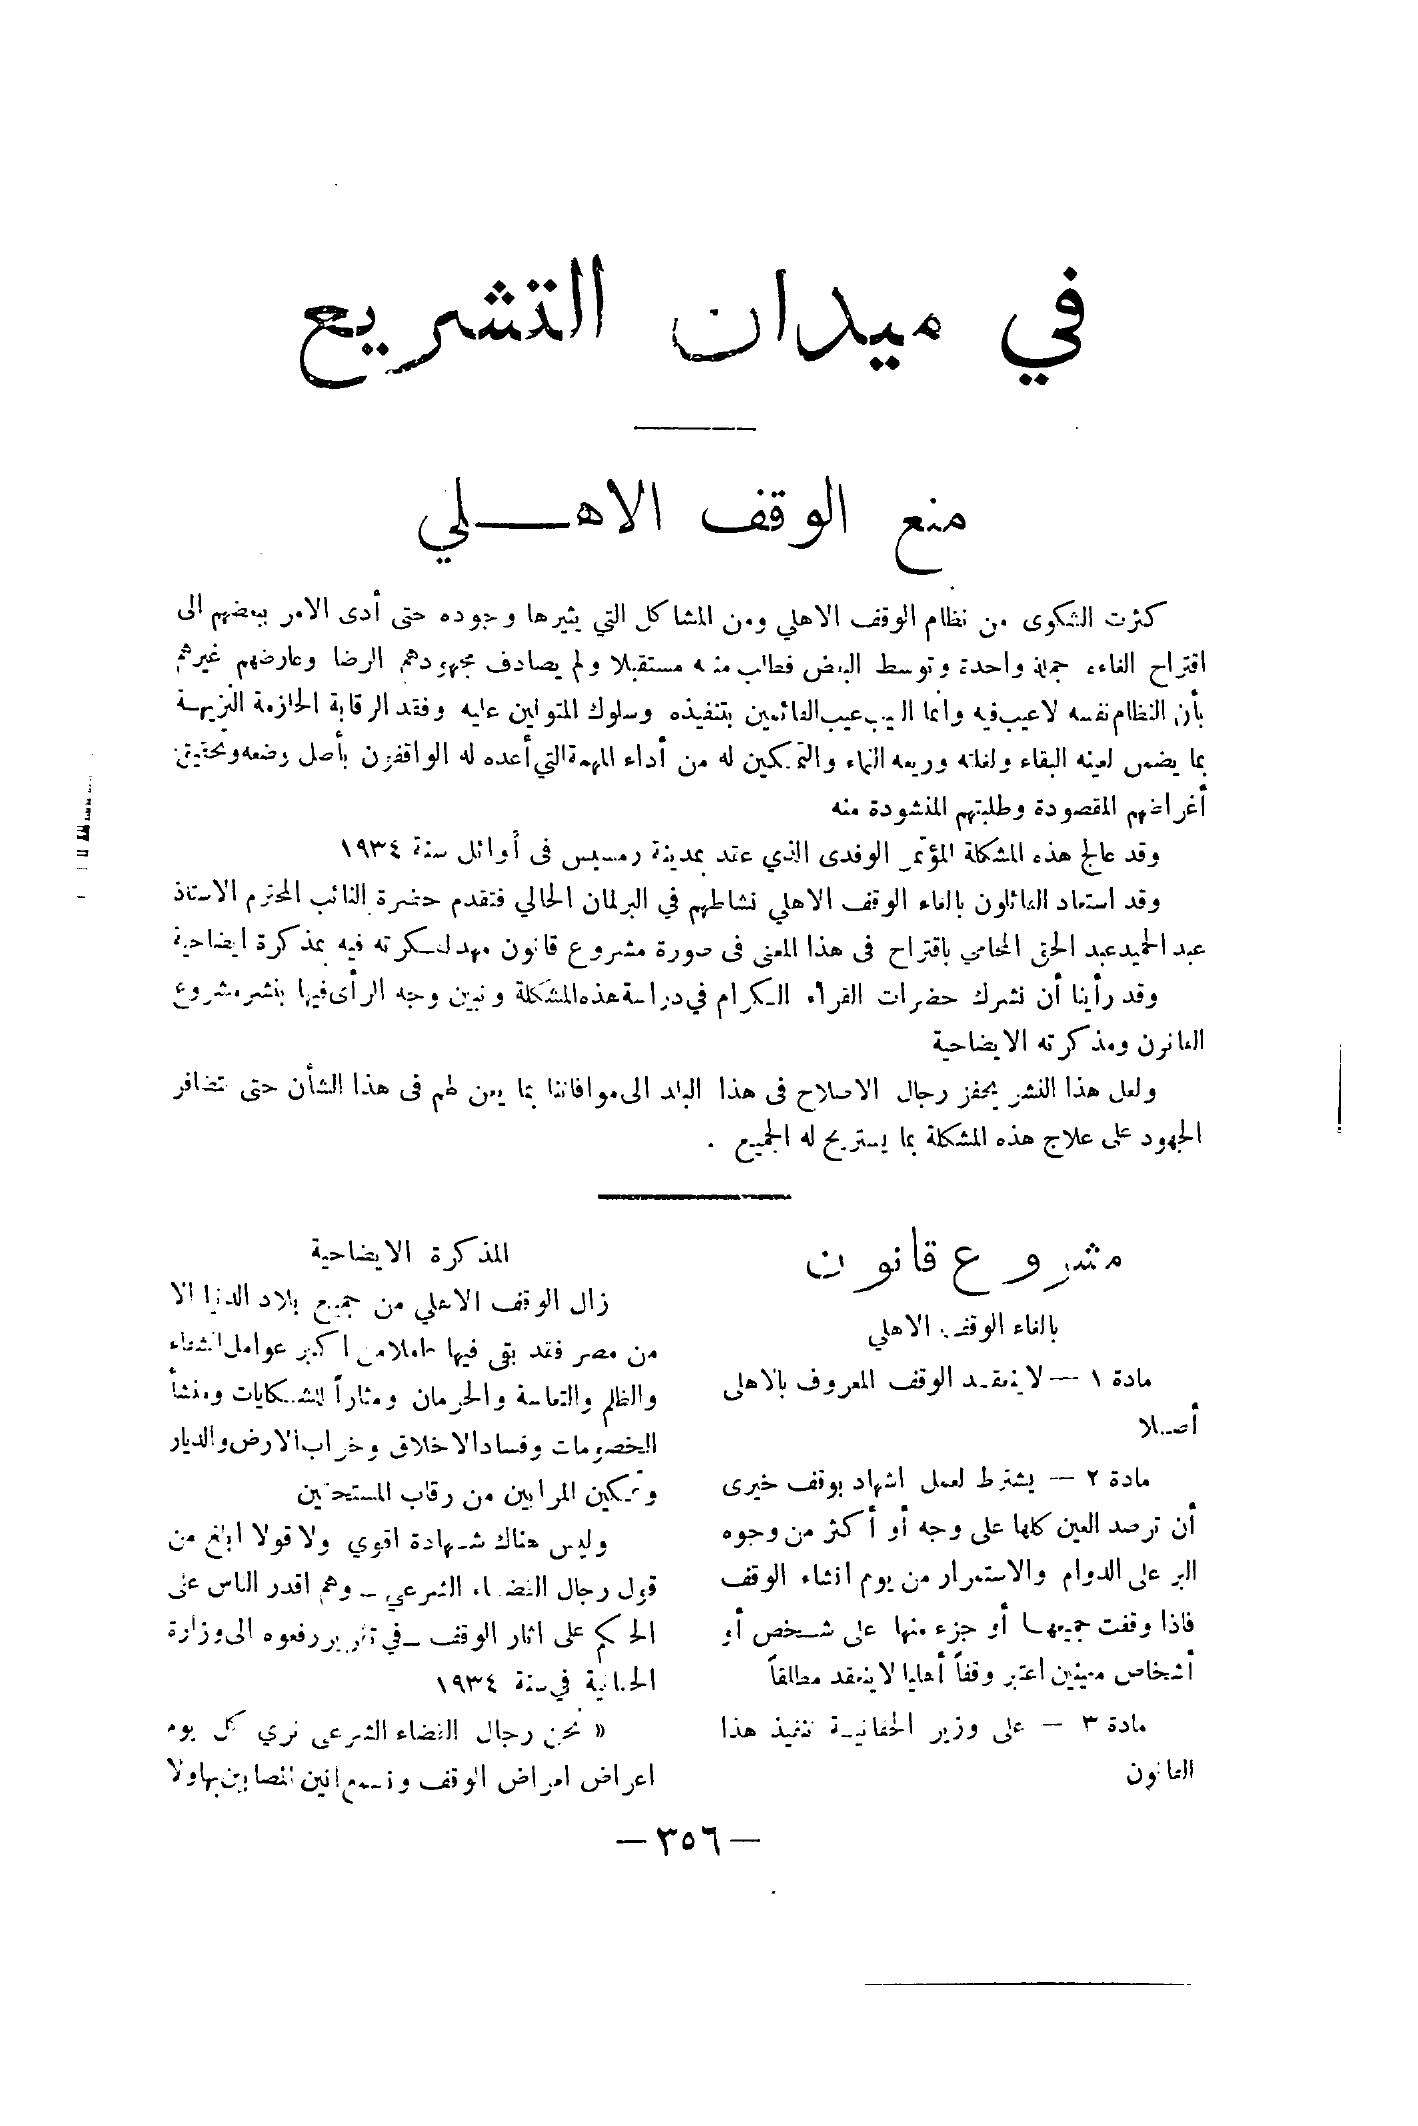 في ميدان التشريع
منع الوقف الاهلي
كثرت الشكوى من نظام الوقف الاهلي ومن المشاكل التي يثيرها وجوده حتى أدى الامر ببعضهم الى
اقتراح الغاءه جملة واحدة وتوسط البعض فطالب منعه مستقبلا ولم يصادف مجهودهم الرضا وعارضهم غيرهم
بأن النظام نفسه لاعيب فيه وانما العيب عيب القائمين بتنفيذه وسلوك المتولين عليه وفقد الرقابة الحازمة النزيهة
بما يضمن لعينه البقاء ولغلته وريعه النماء والتمكين له من أداء المهمة التي أعده له الواقفون بأصل وضعه وتحقيق
أغراضهم المقصودة وطلبتهم المنشودة منه
وقد عالج هذه المشكلة المؤتمر الوفدى الذي عقد بمدينة رمسيس فى أوائل سنة ١٩٣٤
وقد استعاد القائلون بالغاء الوقف الاهلي نشاطهم في البرلمان الحالي فتقدم حضرة النائب المحترم الاستاذ
عبد الحميد عبد الحق المحامي باقتراح فى هذا المعنى فى صورة مشروع قانون مهد لفكرته فيه بمذكرة ايضاحية
وقد رأينا أن نشرك حضرات القراء الكرام في دراسة هذه المشكلة ونبين وجه الرأى فيها بنشر مشروع
القانون ومذكرته الايضاحية
ولعل هذا النشر يحفز رجال الاصلاح فى هذا البلد الى موافاتنا بما يعن لهم فى هذا الشأن حتى تضافر
الجهود على علاج هذه المشكلة بما يستريح له الجميع .
مشروع قانون
بالغاء الوقف الاهلي
مادة ١ — لا ينعقد الوقف المعروف بالاهلى
أصلا
مادة ٢ — يشترط لعمل اشهاد بوقف خيرى
أن ترصد العين كلها على وجه أو أكثر من وجوه
البر على الدوام والاستمرار من يوم انشاء الوقف
فاذا وقفت جميعها أو جزء منها على شخص أو
أشخاص معينين اعتبر وقفاً أهليا لا ينعقد مطلقاً
مادة ٣ — على وزير الحقانية تنفيذ هذا
القانون
المذكرة الايضاحية
زال الوقف الاهلي من جميع بلاد الدنيا الا
من مصر فقد بقى فيها عاملا من اكبر عوامل الشقاء
والظلم والتعاسة والحرمان ومثاراً للشكايات ومنشأ
الخصومات وفساد الاخلاق وخراب الارض والديار
وتمكين المرابين من رقاب المستحقين
وليس هناك شهادة اقوي ولا قولا ابلغ من
قول رجال القضاء الشرعي – وهم اقدر الناس على
الحكم على اثار الوقف – في تقرير رفعوه الى وزارة
الحقانية في سنة ١٩٣٤
« نحن رجال القضاء الشرعى نري كل يوم
اعراض امراض الوقف ونسمع انين المصابين بها ولا
— ٣٥٦ —